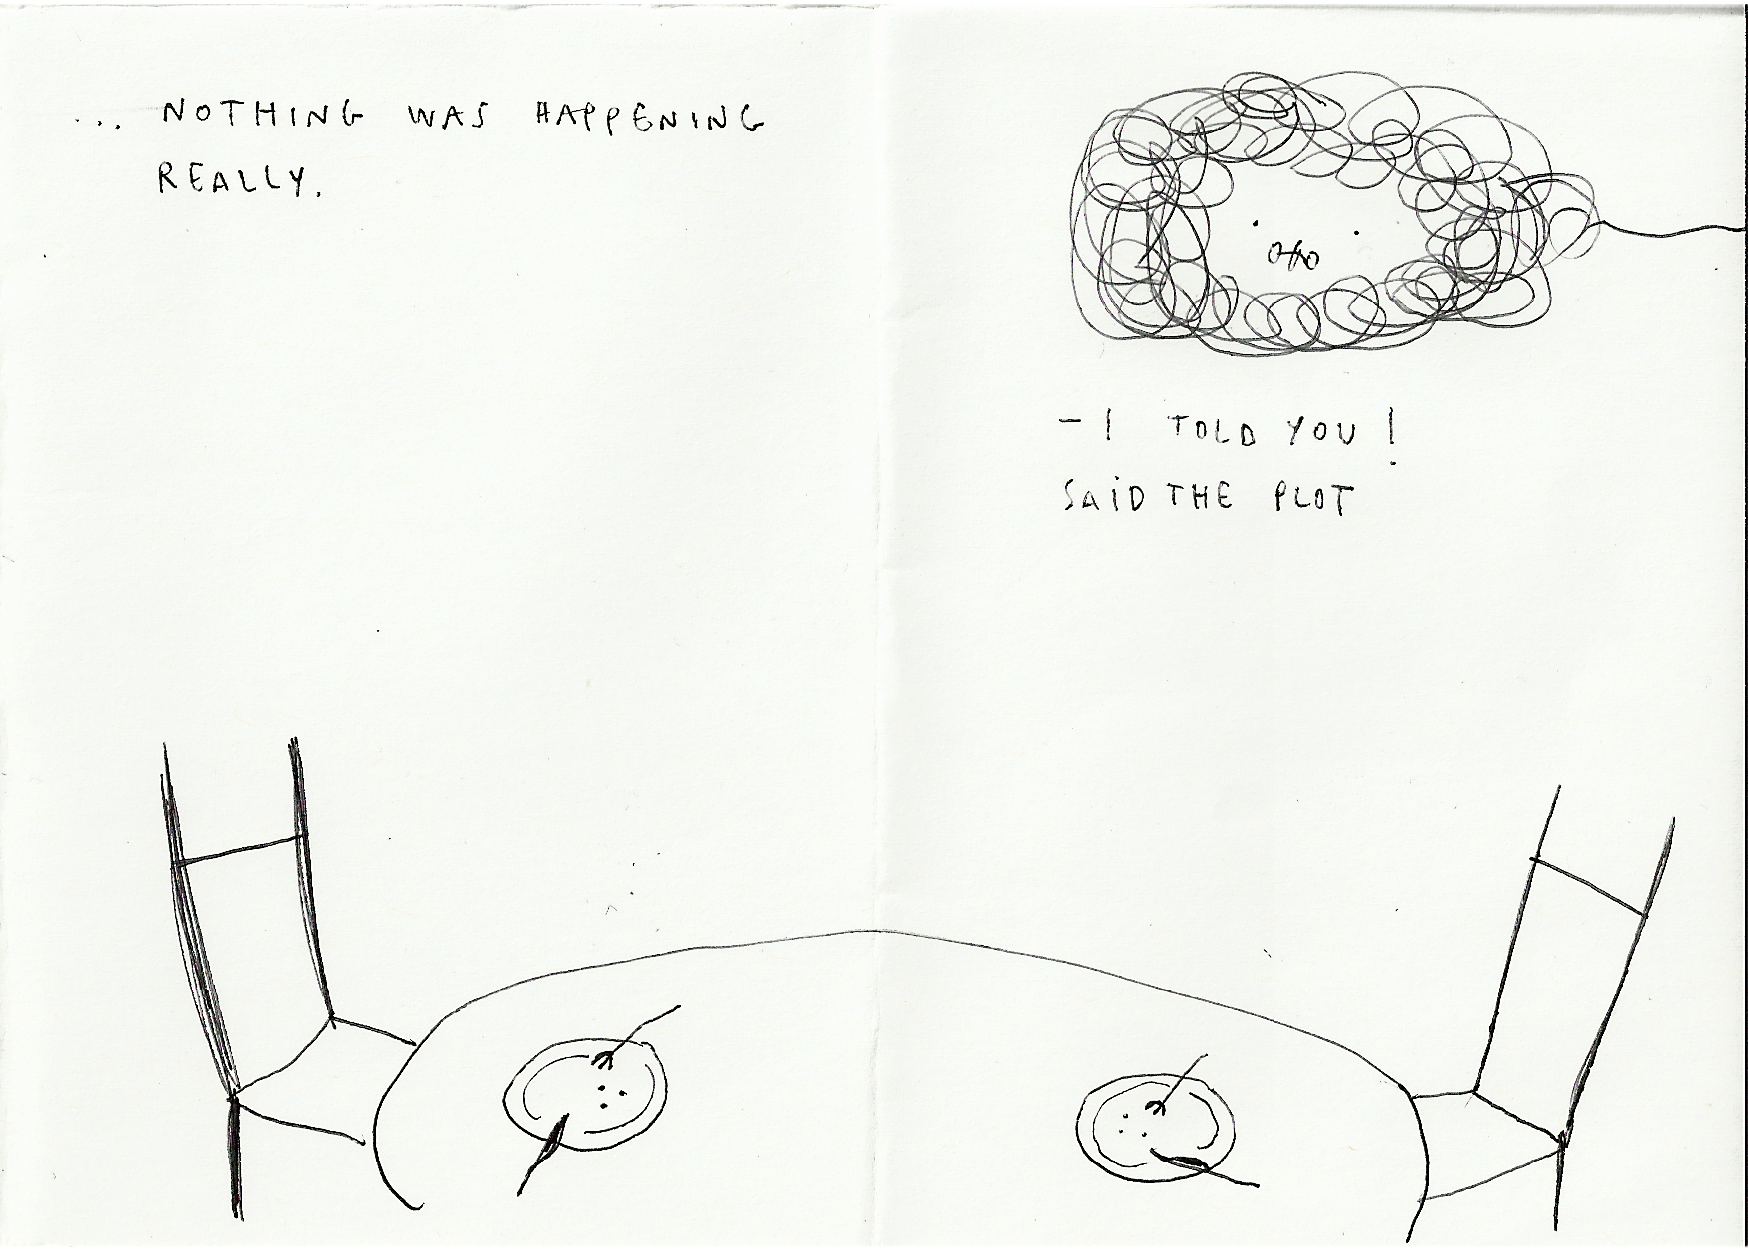 ... NOTHING WAS HAPPENING
REALLY.
- I TOLD YOU!
SAiD THE PLOT